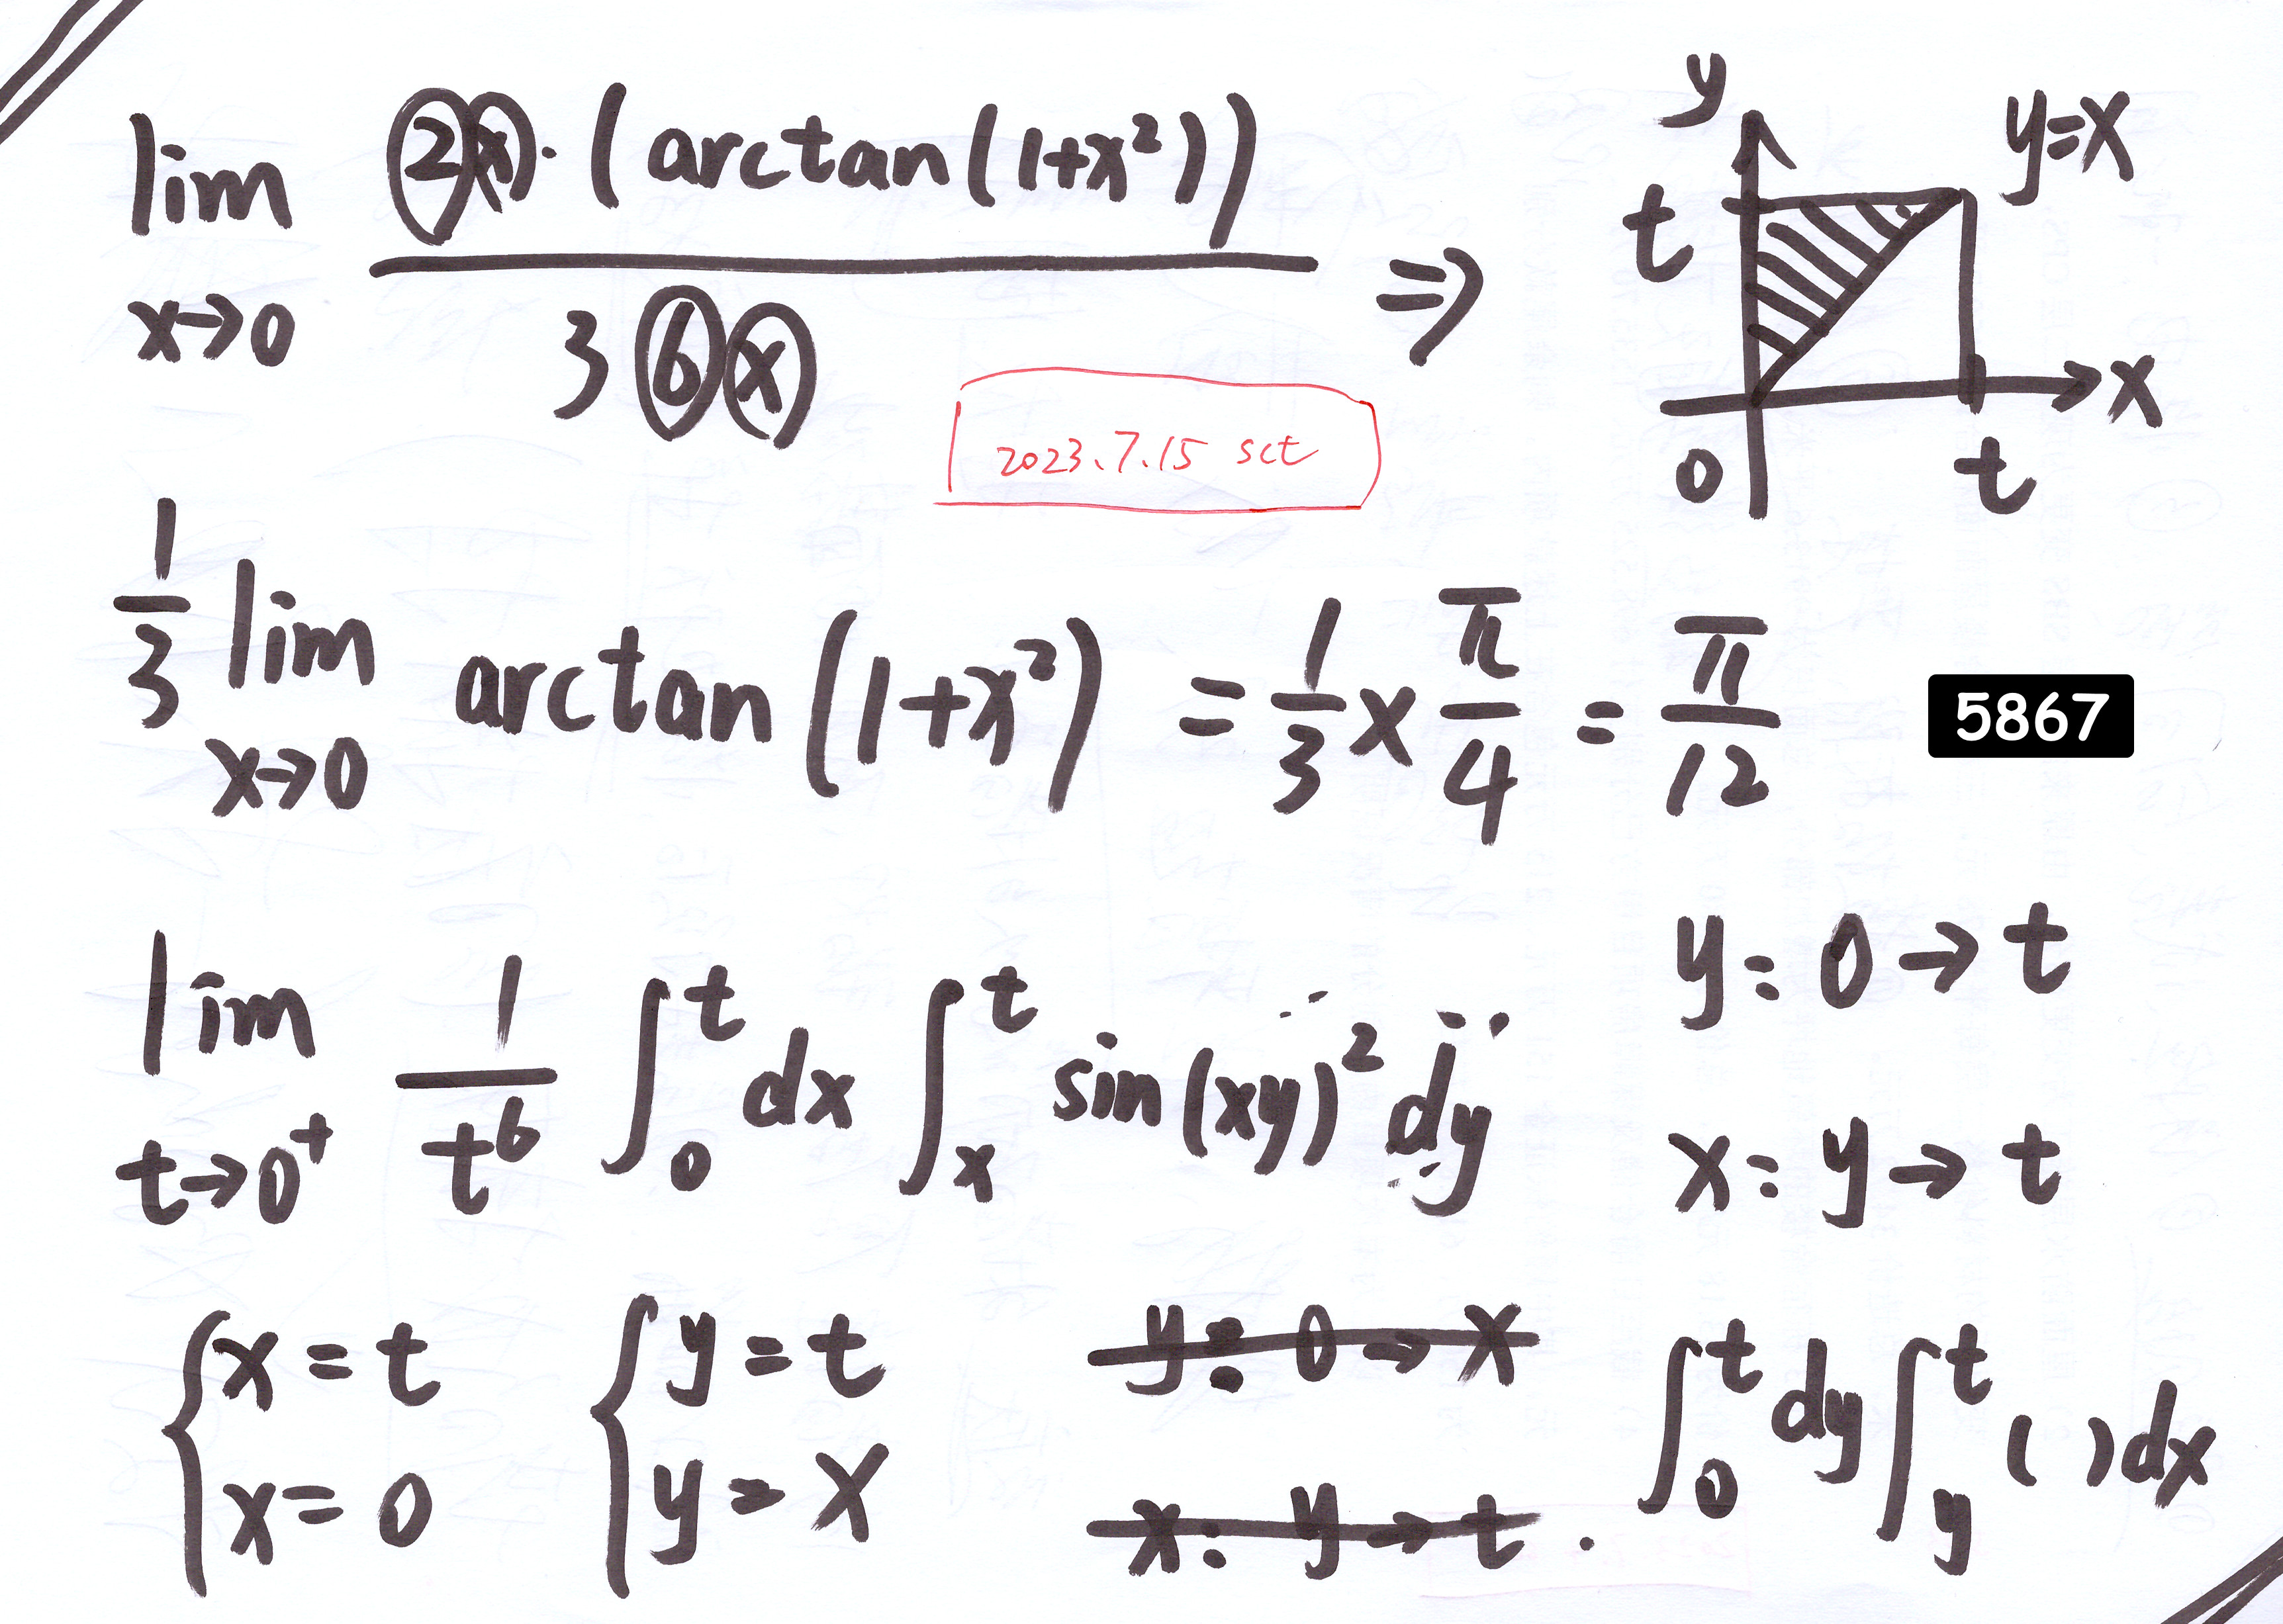 lim x→0 2x·(arctan(1+x²)) / 3 6 x ⇒
y
y=x
t
x
0 t
2023.7.15 sct
1/3 lim x→0 arctan(1+x²) = 1/3 × π/4 = π/12
5867
lim t→0⁺ 1/t⁶ ∫₀ᵗ dx ∫ₓᵗ sin(xy)² dy
y: 0→t
x: y→t
{ x = t
x = 0
{ y = t
y = x
y: 0→x
x: y→t .
∫₀ᵗ dy ∫ᵧᵗ ( ) dx